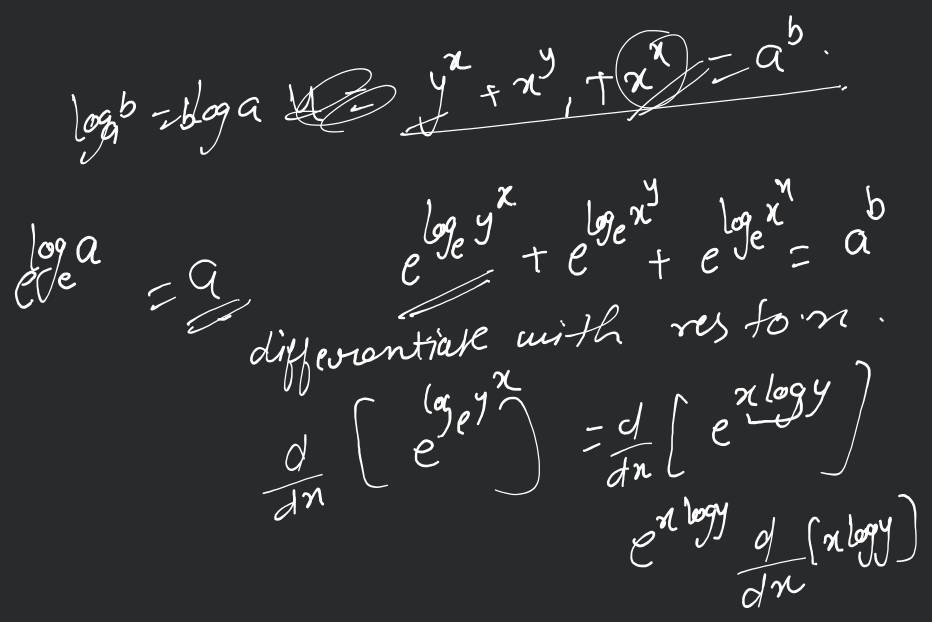 log a^b = b log a   y^x + x^y + x^x = a^b .
e^{log_e a} = a   e^{log_e y^x} + e^{log_e x^y} + e^{log_e x^x} = a^b
differentiate with res to x .
d/dx [ e^{log_e y^x} ] = d/dx [ e^{x log y} ]
e^{x log y} d/dx [x log y]